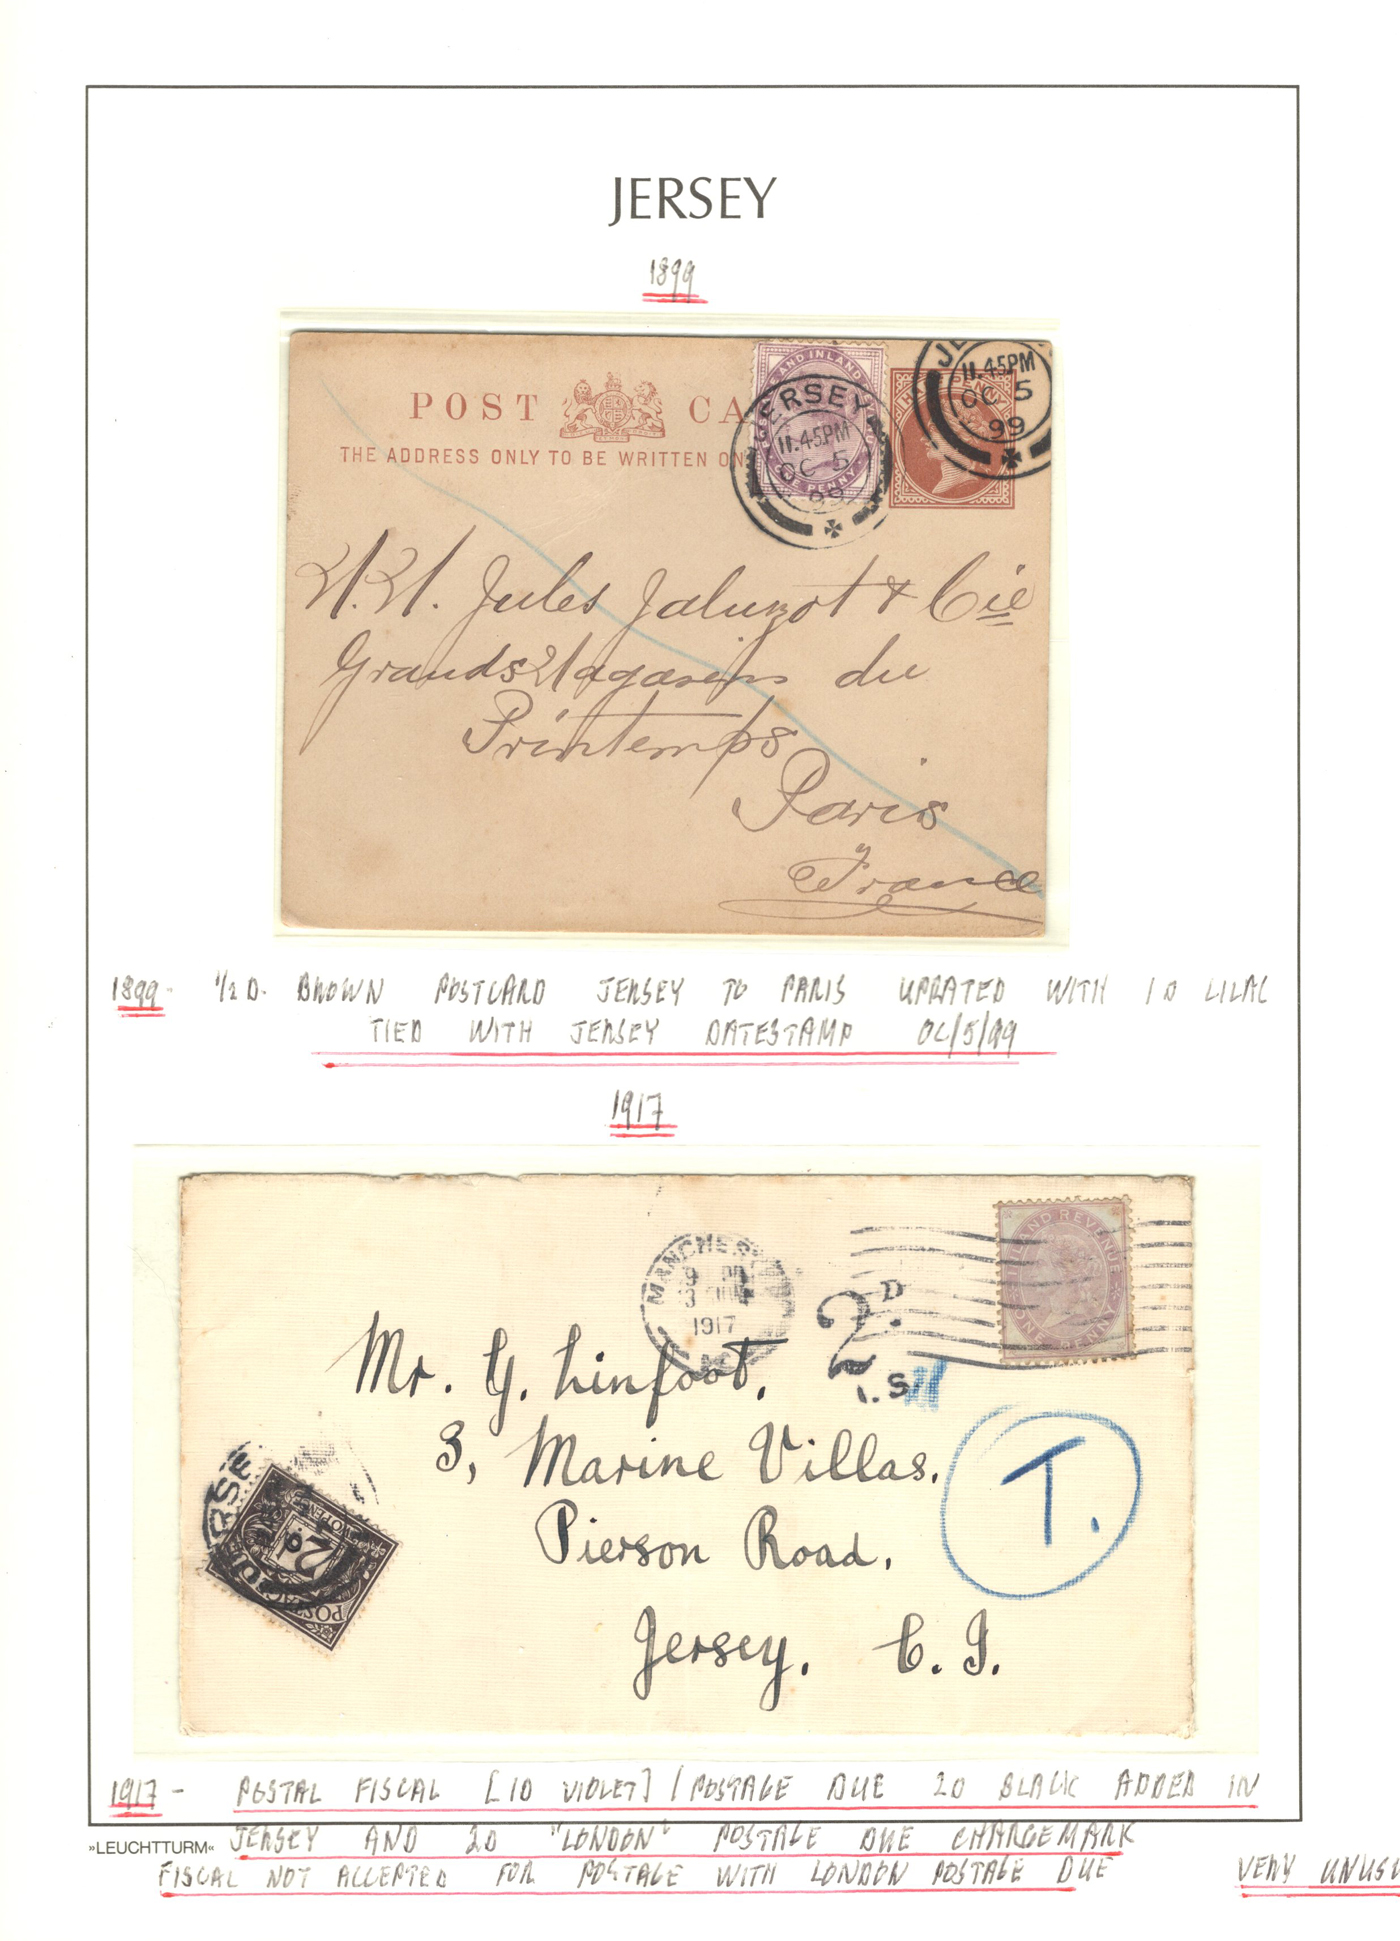 JERSEY
1899
POST CA
THE ADDRESS ONLY TO BE WRITTEN ON
AND INLAND
ONE PENNY
JERSEY
11.45PM
OC 5
99
HALFPENNY
11.45PM
OC 5
99
M.M. Jules Jaluzot & Cie
Grands Magasins du
Printemps
Paris
France
1899 - 1/2 D. BROWN POSTCARD JERSEY TO PARIS UPRATED WITH 1D LILAC
TIED WITH JERSEY DATESTAMP OC/5/99
1917
INLAND REVENUE
ONE PENNY
MANCHE
1917
2D.
I.S
Mr. G. Linfoot.
3, Marine Villas.
Pierson Road.
Jersey. C. I.
T.
JERSE
2D
POSTAG
1917 - POSTAL FISCAL [1D VIOLET] / POSTAGE DUE 2D BLACK ADDED IN
»LEUCHTTURM« JERSEY AND 2D "LONDON" POSTAGE DUE CHARGEMARK
FISCAL NOT ACCEPTED FOR POSTAGE WITH LONDON POSTAGE DUE VERY UNUSU